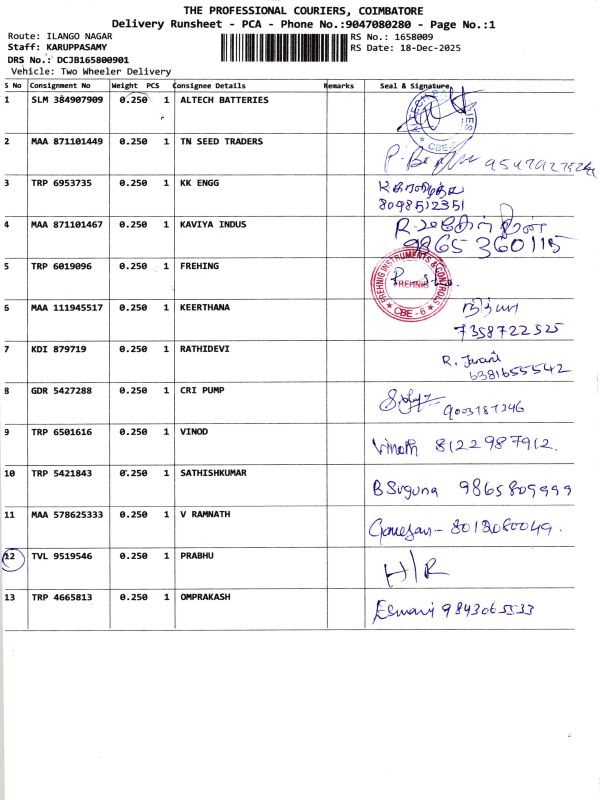 THE PROFESSIONAL COURIERS, COIMBATORE
Delivery Runsheet - PCA - Phone No.:9047080280 - Page No.:1
Route: ILANGO NAGAR
RS No.: 1658009
Staff: KARUPPASAMY
RS Date: 18-Dec-2025
DRS No.: DCJB165800901
Vehicle: Two Wheeler Delivery
S No Consignment No Weight PCS Consignee Details Remarks Seal & Signature
1 SLM 384907909 0.250 1 ALTECH BATTERIES
2 MAA 871101449 0.250 1 TN SEED TRADERS
3 TRP 6953735 0.250 1 KK ENGG
8098512351
4 MAA 871101467 0.250 1 KAVIYA INDUS
9865360115
5 TRP 6019096 0.250 1 FREHING
FREHNIG INSTRUMENTS & CONTROLS
FREHNIG
CBE - 6
6 MAA 111945517 0.250 1 KEERTHANA நித்யா
7358722525
7 KDI 879719 0.250 1 RATHIDEVI R.
6381655542
8 GDR 5427288 0.250 1 CRI PUMP 9003187346
9 TRP 6501616 0.250 1 VINOD Vinoth 8122987912.
10 TRP 5421843 0.250 1 SATHISHKUMAR B Suguna 9865809999
11 MAA 578625333 0.250 1 V RAMNATH Ganesan - 8013080049.
12 TVL 9519546 0.250 1 PRABHU H/R
13 TRP 4665813 0.250 1 OMPRAKASH Eswari 9843065533